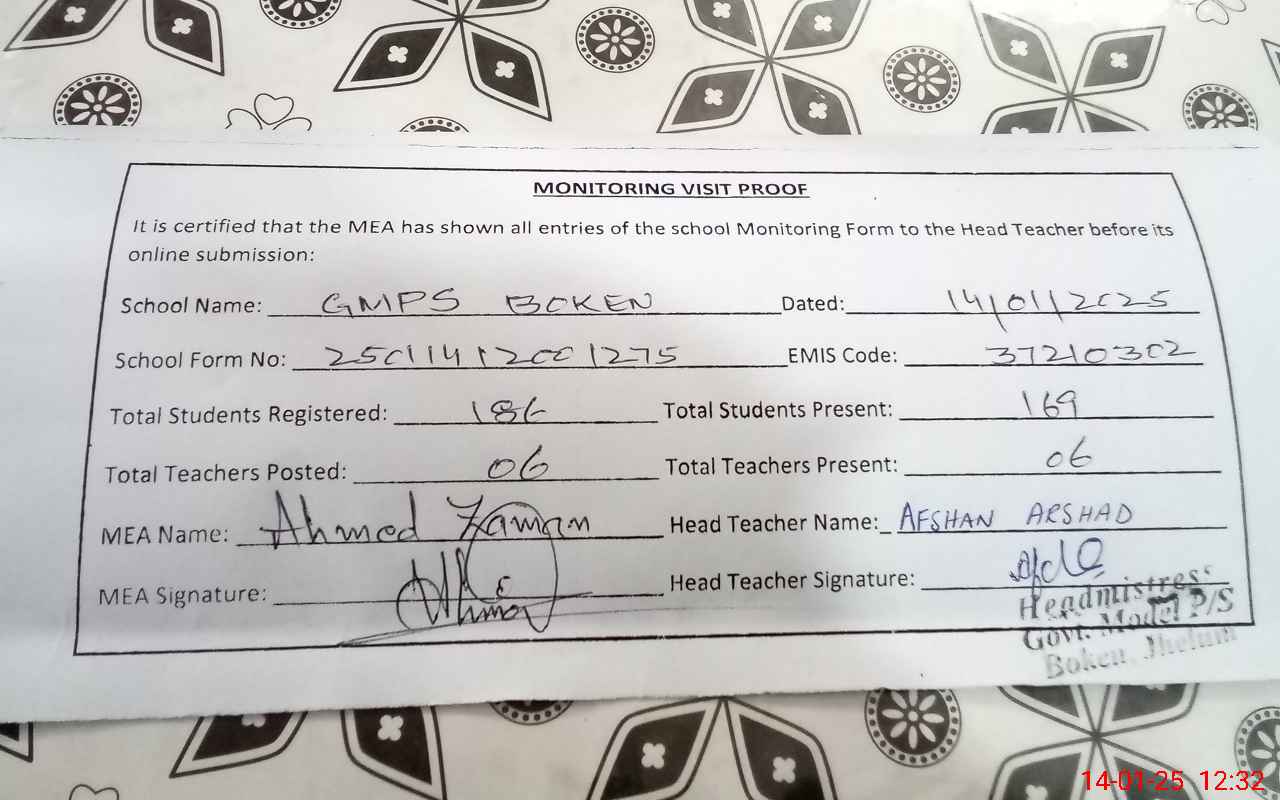 MONITORING VISIT PROOF
It is certified that the MEA has shown all entries of the school Monitoring Form to the Head Teacher before its
online submission:
School Name: GMPS BOKEN Dated: 14/01/2025
School Form No: 25011412001275 EMIS Code: 37210302
Total Students Registered: 186 Total Students Present: 169
Total Teachers Posted: 06 Total Teachers Present: 06
MEA Name: Ahmed Zaman Head Teacher Name: AFSHAN ARSHAD
MEA Signature: Head Teacher Signature:
Headmistress
Govt. Model P/S
Boken, Jhelum
14-01-25 12:32